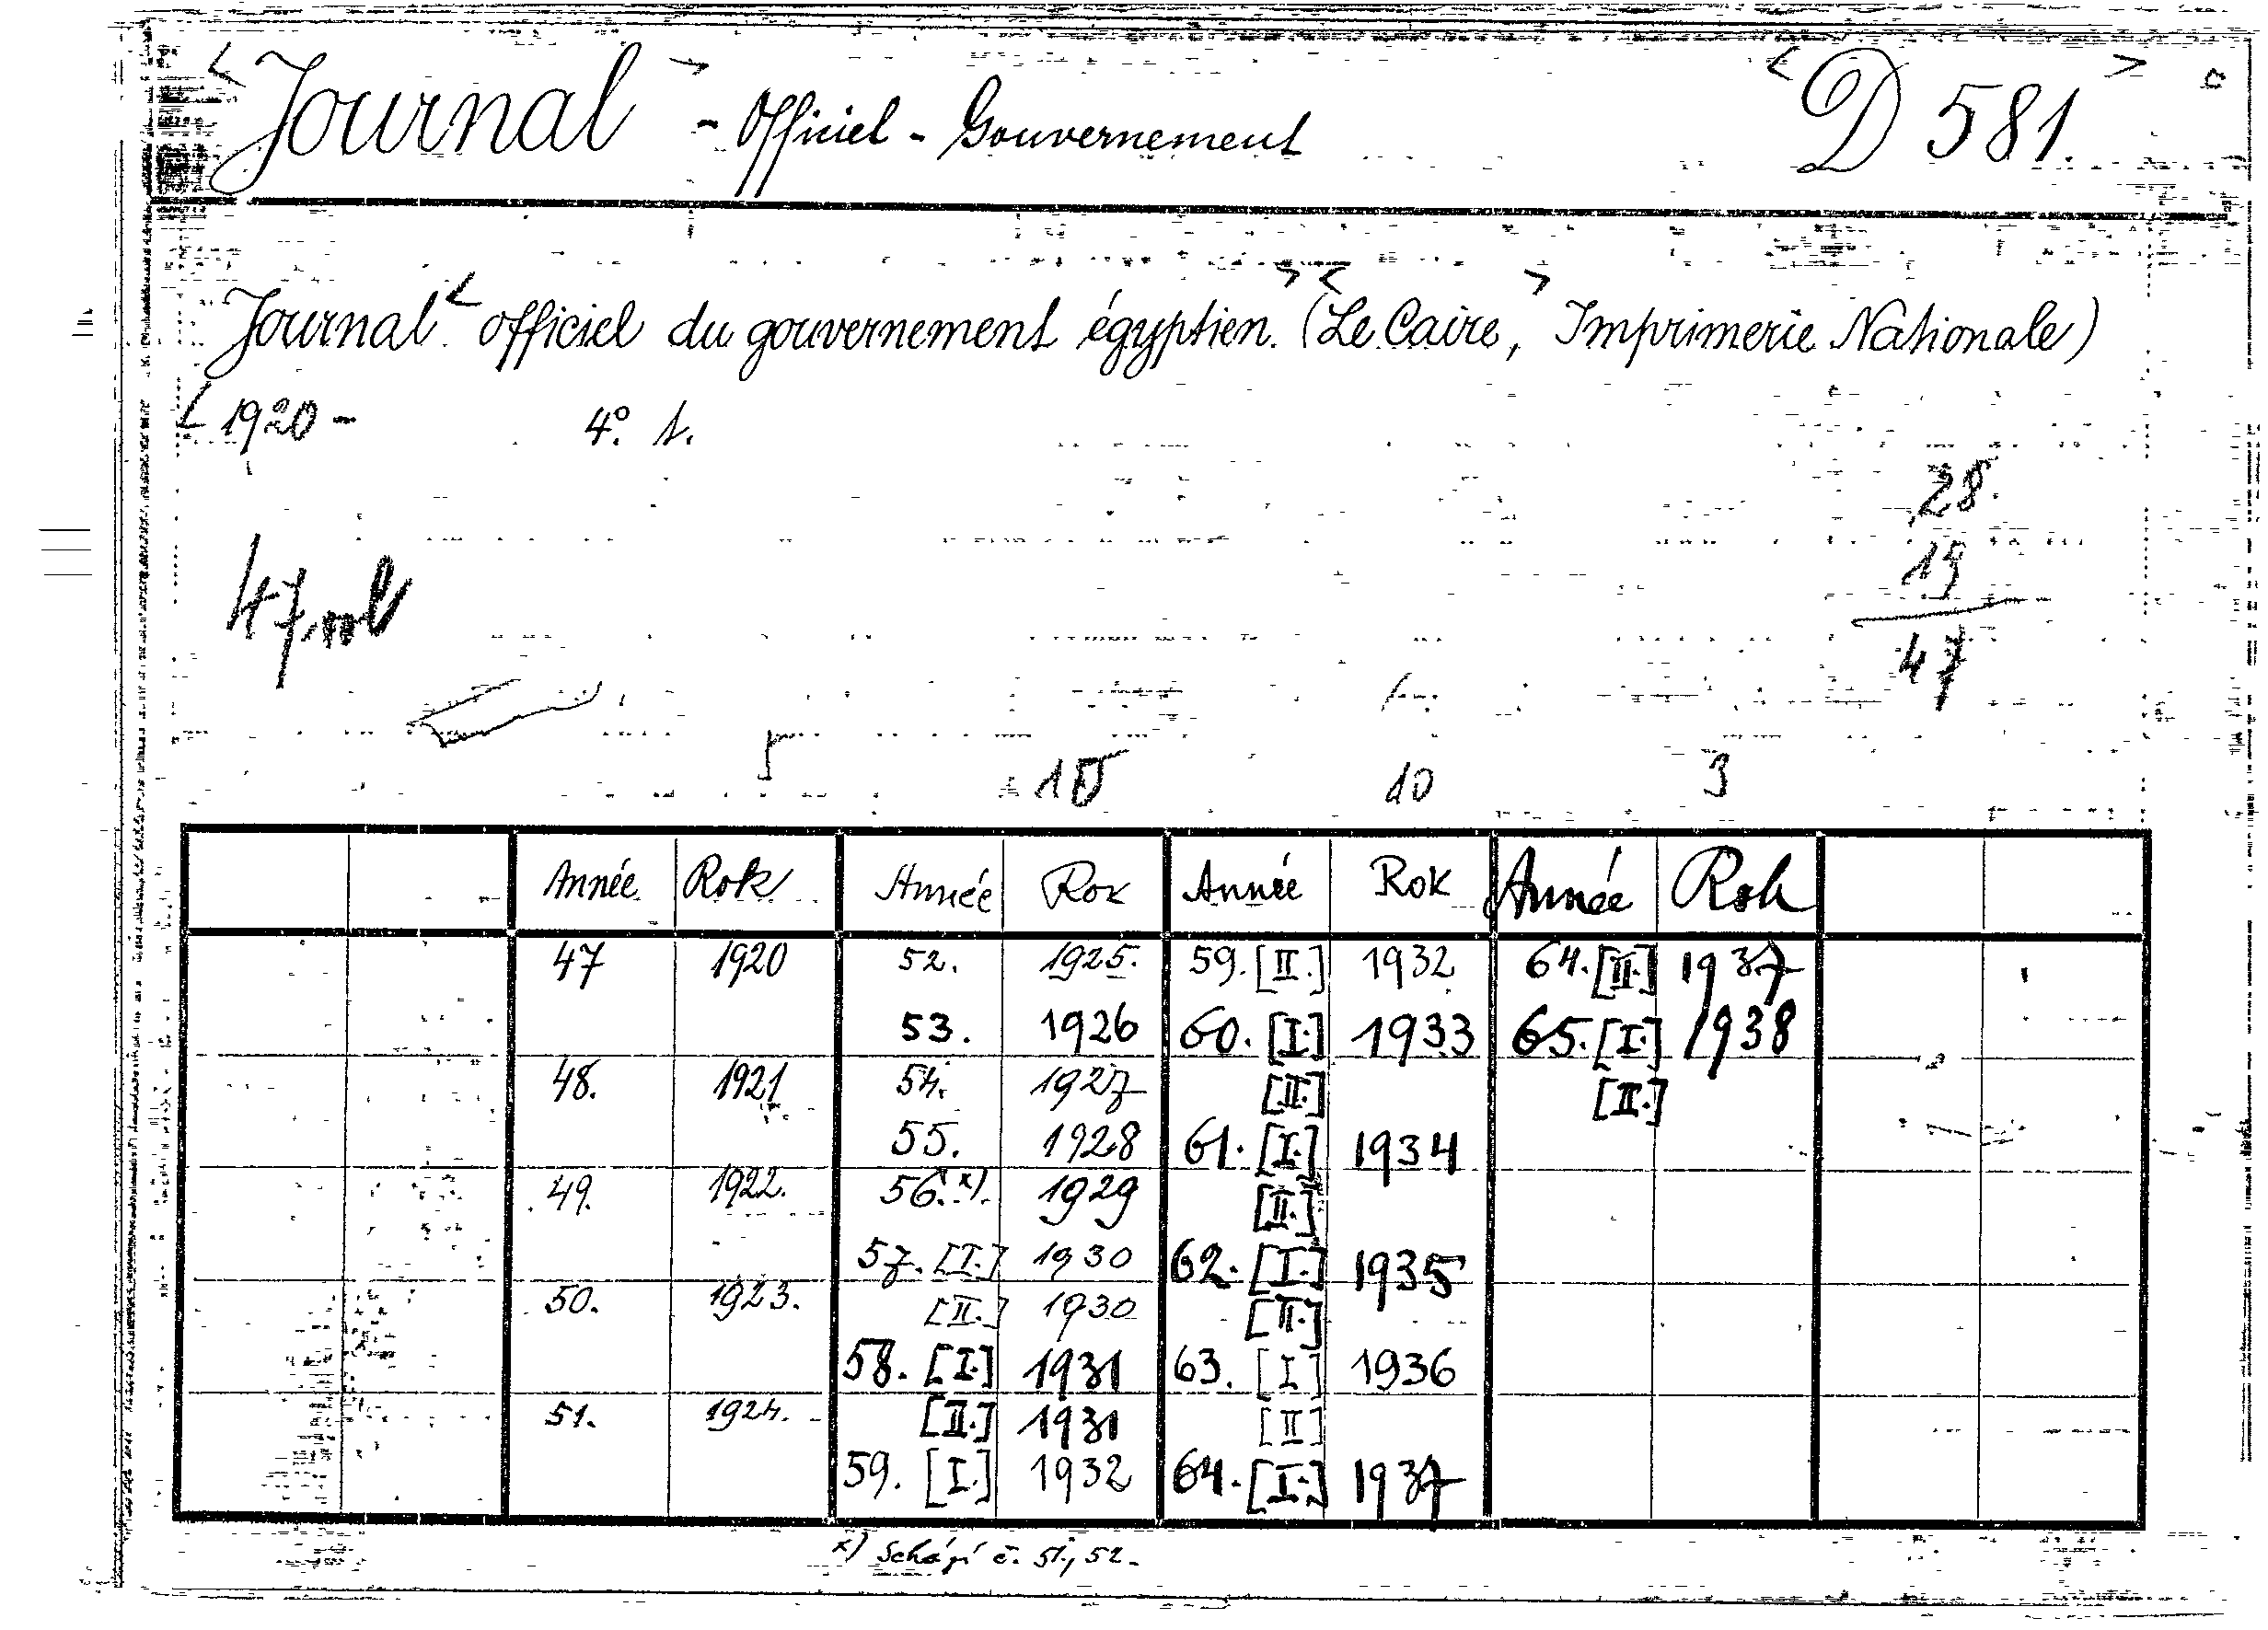 <Journal> - Officiel - Gouvernement <D 581.>
Journal <officiel du gouvernement égyptien.> (<Le Caire,> Imprimerie Nationale)
<1920 - 4°. 1.
28.
19
47
47
5 15 10 3
Année Rok Année Rok Année Rok Année Rok
47 1920 52. 1925. 59. [II.] 1932 64. [II.] 1937
53. 1926 60. [I.] 1933 65. [I.] 1938
48. 1921 54. 1927 [II.] [II.]
55. 1928 61. [I.] 1934
49. 1922. 56. x) 1929 [II.]
57. [I.] 1930 62. [I.] 1935
50. 1923. [II.] 1930 [II.]
58. [I.] 1931 63. [I] 1936
51. 1924. [II.] 1931 [II]
59. [I.] 1932 64. [I.] 1937
x) Schází č. 51., 52.